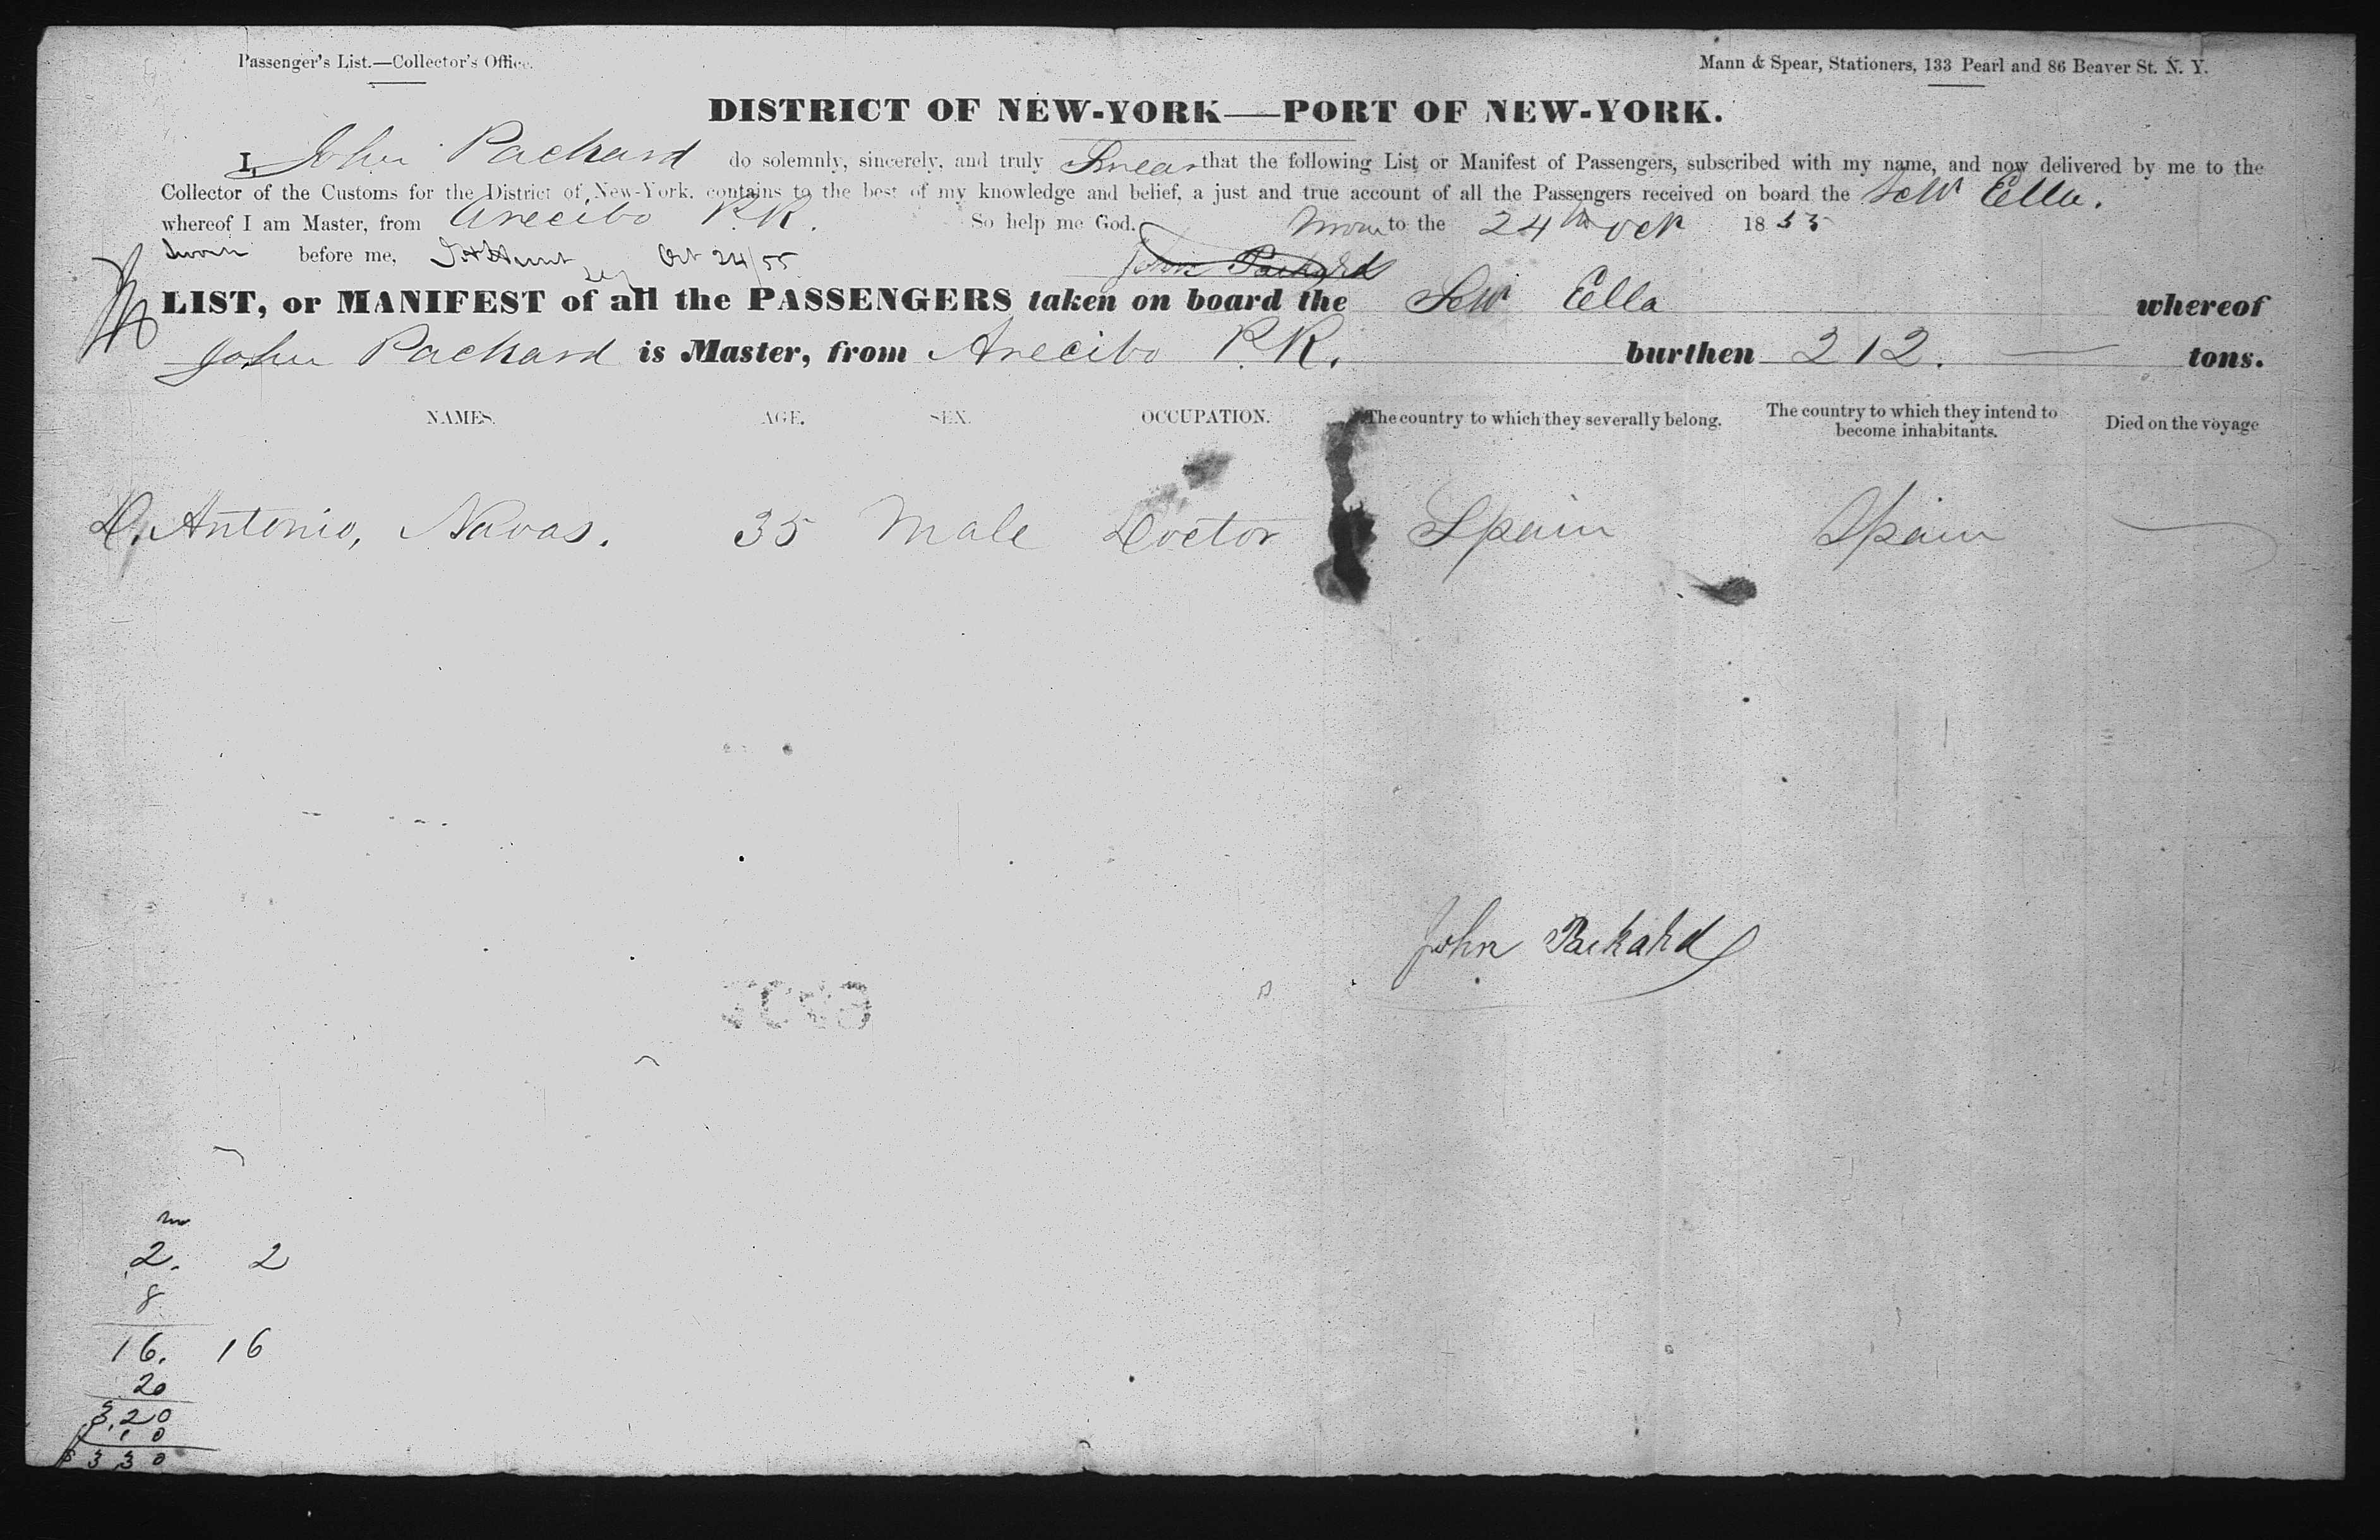 Passenger's List.—Collector's Office.
Mann & Spear, Stationers, 133 Pearl and 86 Beaver St. N. Y.
DISTRICT OF NEW-YORK—PORT OF NEW-YORK.
I, John Packard do solemnly, sincerely, and truly Swear that the following List or Manifest of Passengers, subscribed with my name, and now delivered by me to the
Collector of the Customs for the District of New-York, contains to the best of my knowledge and belief, a just and true account of all the Passengers received on board the Schr Ella.
whereof I am Master, from Arecibo P.R. So help me God. to the 24th Oct 1855
Sworn before me, Oct 24/55
John Packard
LIST, or MANIFEST of all the PASSENGERS taken on board the Schr Ella whereof
John Packard is Master, from Arecibo P.R. burthen 212. tons.
NAMES. AGE. SEX. OCCUPATION. The country to which they severally belong. The country to which they intend to become inhabitants. Died on the voyage
D. Antonio, Navas. 35 Male Doctor Spain Spain
John Packard
2. 2
8
16. 16
20
3,20
10
$ 3 30